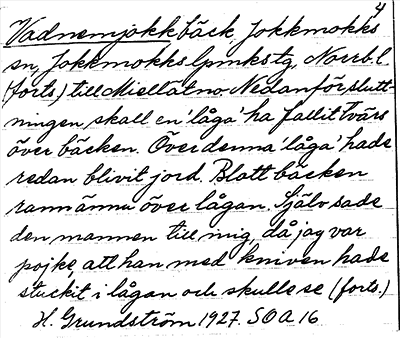 4
Vadnemjokkbäck Jokkmokks
sn, Jokkmokks lpmkstg, Norrb. l.
(forts.) till Miellätno. Nedanför slutt-
ningen skall en 'låga' ha fallit tvärs
över bäcken. Över denna 'låga' hade
redan blivit jord. Blott bäcken
rann ännu över lågan. Själv sade
den mannen till mig, då jag var
pojke, att han med kniven hade
stuckit i lågan och skulle se (forts.)
H. Grundström 1927. SOA 16